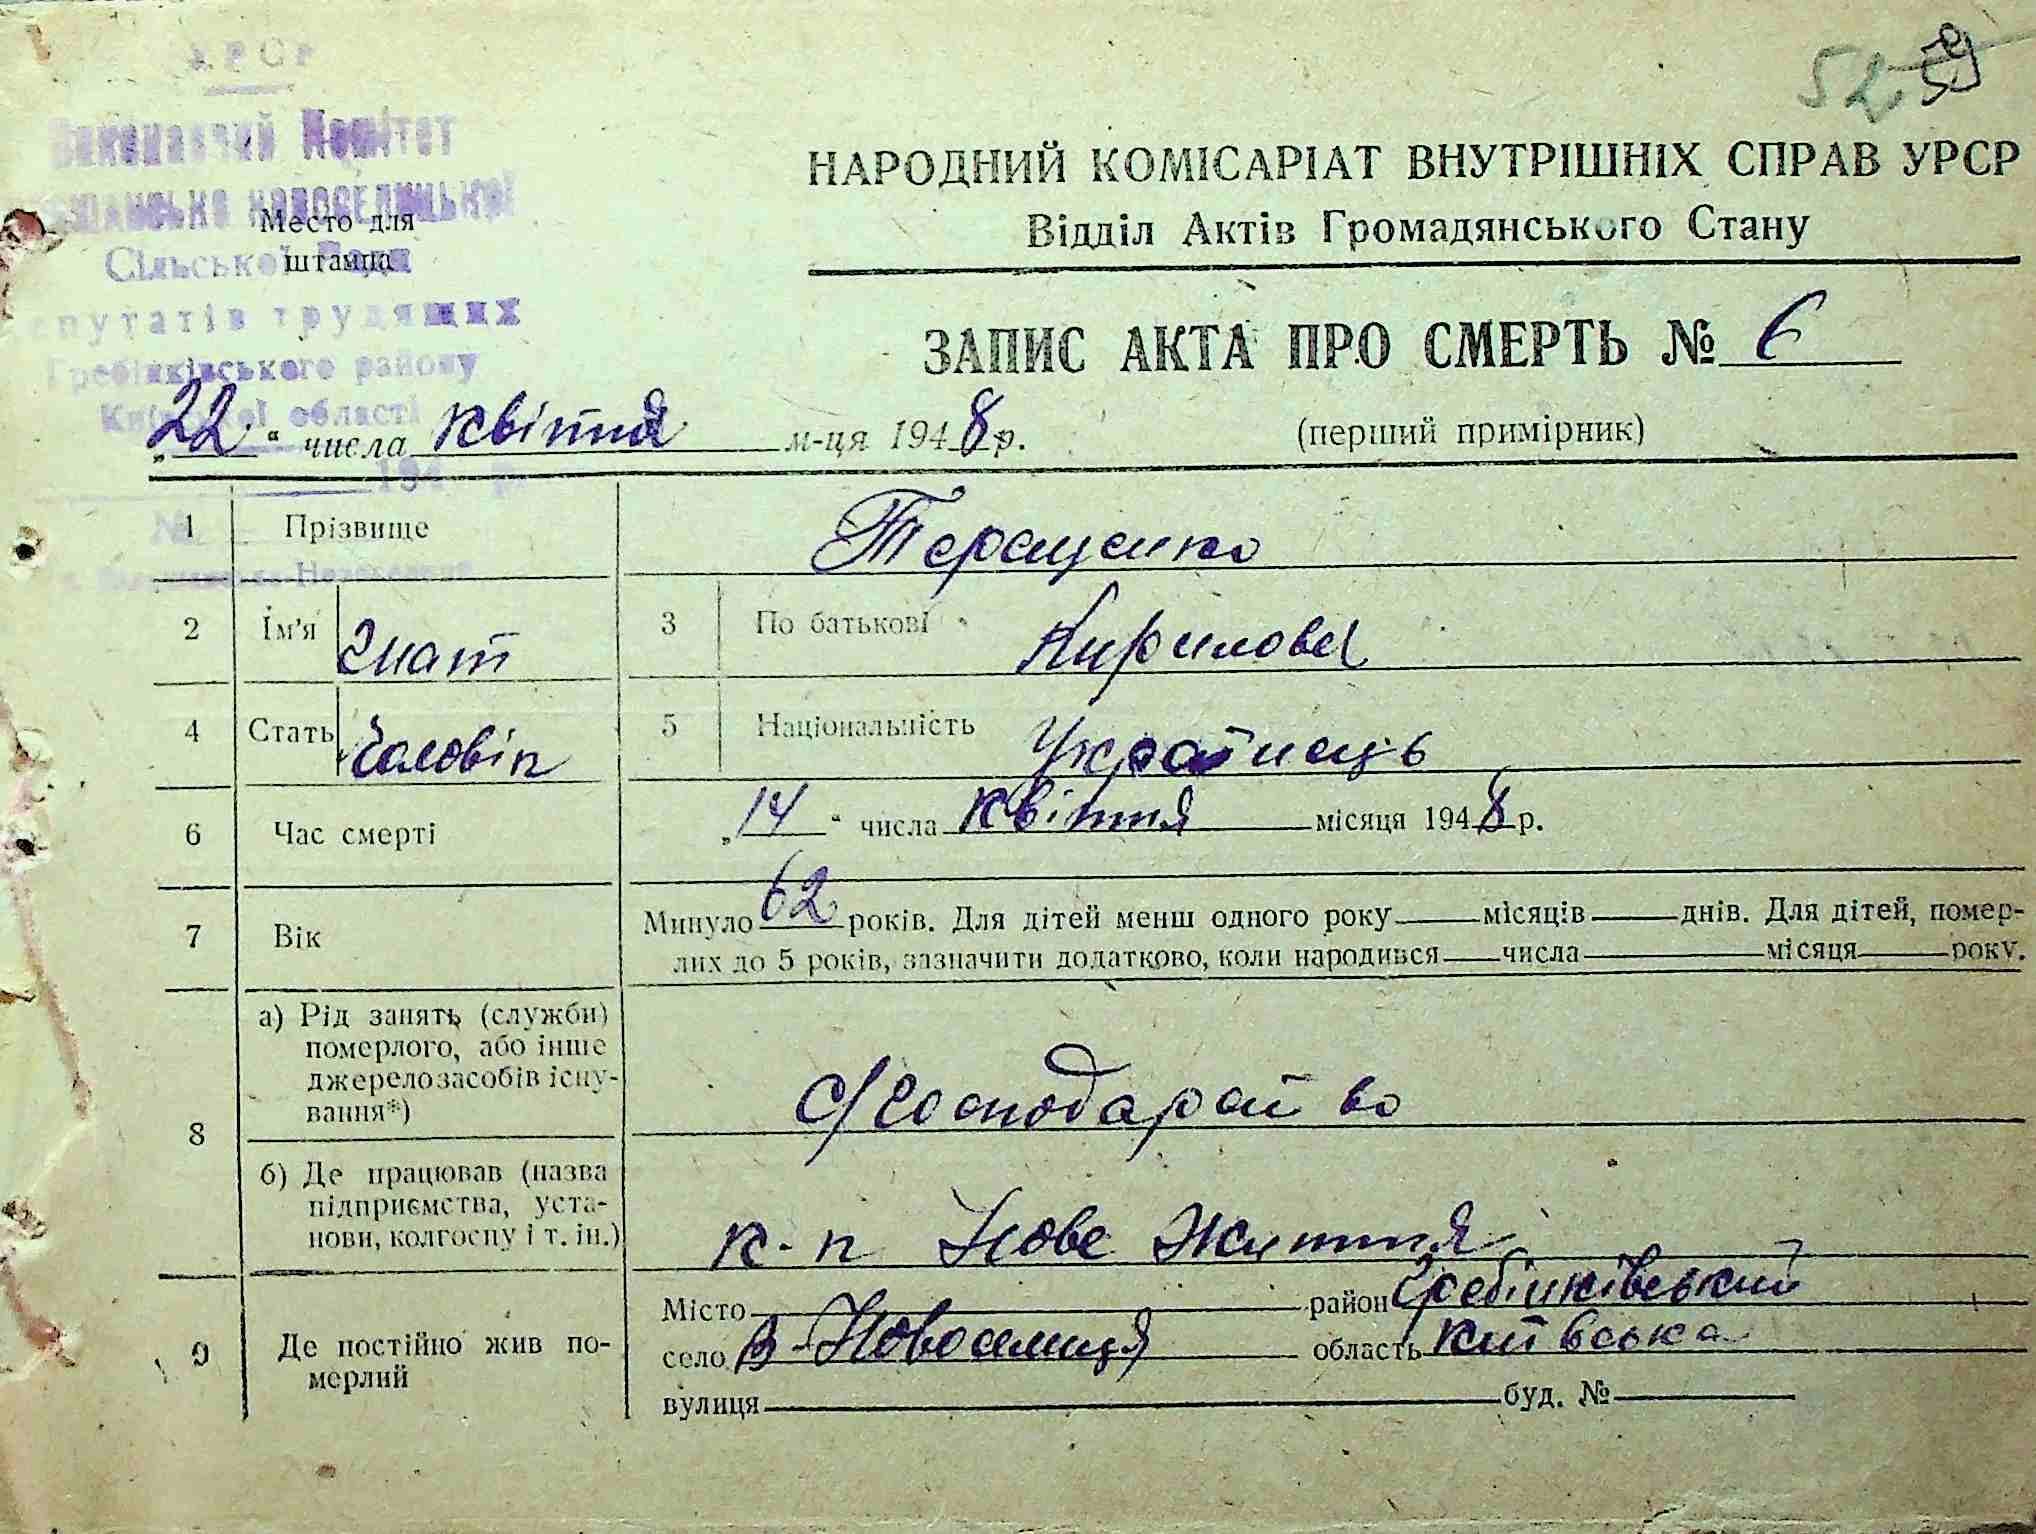 УРСР
Виконавчий Комітет
новоселицької
Сільської Ради
депутатів трудящих
Гребінківського району
Київської області
194 р.
№
Место для
штампа
52 59
НАРОДНИЙ КОМІСАРІАТ ВНУТРІШНІХ СПРАВ УРСР
Відділ Актів Громадянського Стану
ЗАПИС АКТА ПРО СМЕРТЬ № 6
„22“ числа квітня м-ця 1948 р.
(перший примірник)
1 Прізвище Терещенко
2 Ім'я Гнат 3 По батькові Кирилович
4 Стать Чоловік 5 Національність Українець
6 Час смерті „14“ числа квітня місяця 1948 р.
7 Вік Минуло 62 років. Для дітей менш одного року місяців днів. Для дітей, помер-
лих до 5 років, зазначити додатково, коли народився числа місяця року.
8 а) Рід занять (служби)
померлого, або інше
джерело засобів існу-
вання*)
с/господарство
б) Де працював (назва
підприємства, уста-
нови, колгоспу і т. ін.)
к-п Нове Життя
9 Де постійно жив по-
мерлий
Місто район Гребінківський
село В-Новоселиця область київська
вулиця буд. №